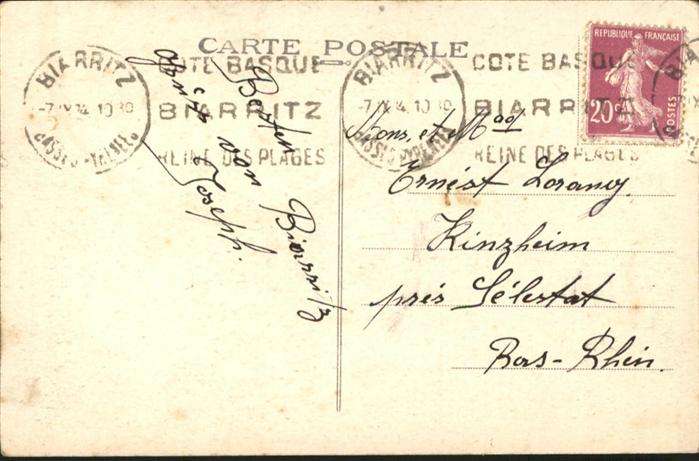 CARTE POSTALE
BIARRITZ
-7.IX.34.10 30
BSES PYRENEES
COTE BASQUE
BIARRITZ
REINE DES PLAGES
BIARRITZ
-7.IX.34.10 30
COTE BASQUE
BIARRITZ
REINE DES PLAGES
REPUBLIQUE FRANÇAISE
20c
POSTES
Besten
Grüss van Biarritz
Joseph.
Mons. et Mad
Ernést Lorang.
Kinzheim
prés Sélestat
Bas-Rhin.